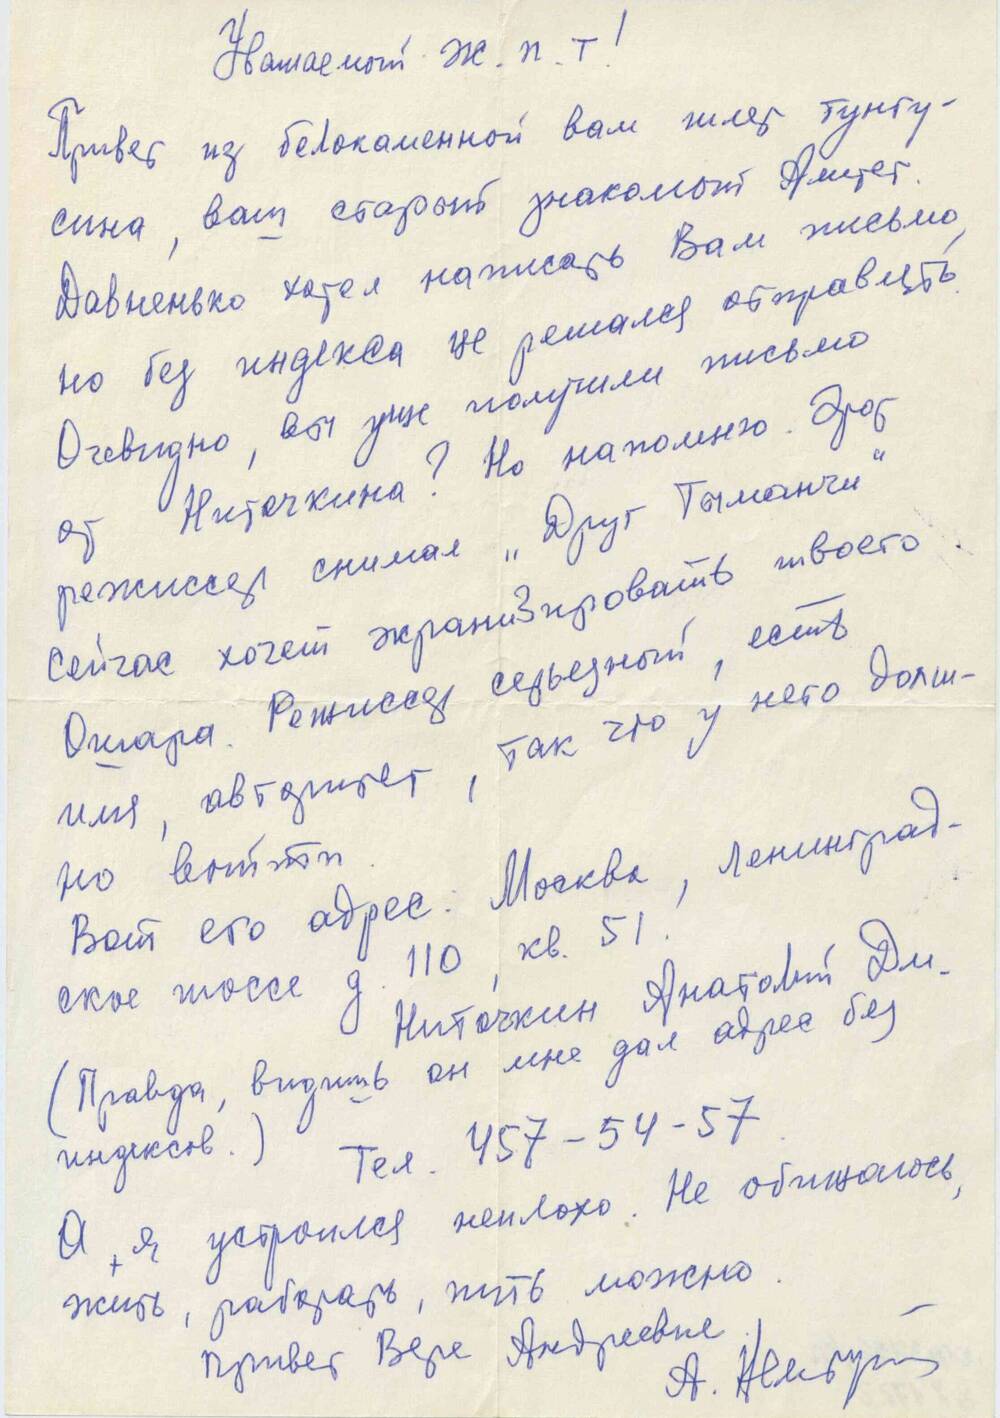 Уважаемый Ж. п. т!
Привет из белокаменной вам шлет тунгу-
сина, ваш старый знакомый Амтет.
Давненько хотел написать Вам письмо,
но без индекса не решался отправить.
Очевидно, вы уже получили письмо
от Ниточкина? Но напомню. Этот
режиссер снимал „Друг Тыманчи“
Сейчас хочет экранизировать твоего
Ошара. Режиссер серьезный, есть
имя, авторитет, так что у него долж-
но выйти.
Вот его адрес: Москва, Ленинград-
ское шоссе д. 110, кв. 51.
Ниточкин Анатолий Дм.
(Правда, видишь он мне дал адрес без
индексов.) Тел. 457-54-57.
А, я устроился неплохо. Не обищаюсь,
жить, работать, жить можно.
Привет Вере Андреевне!
А.